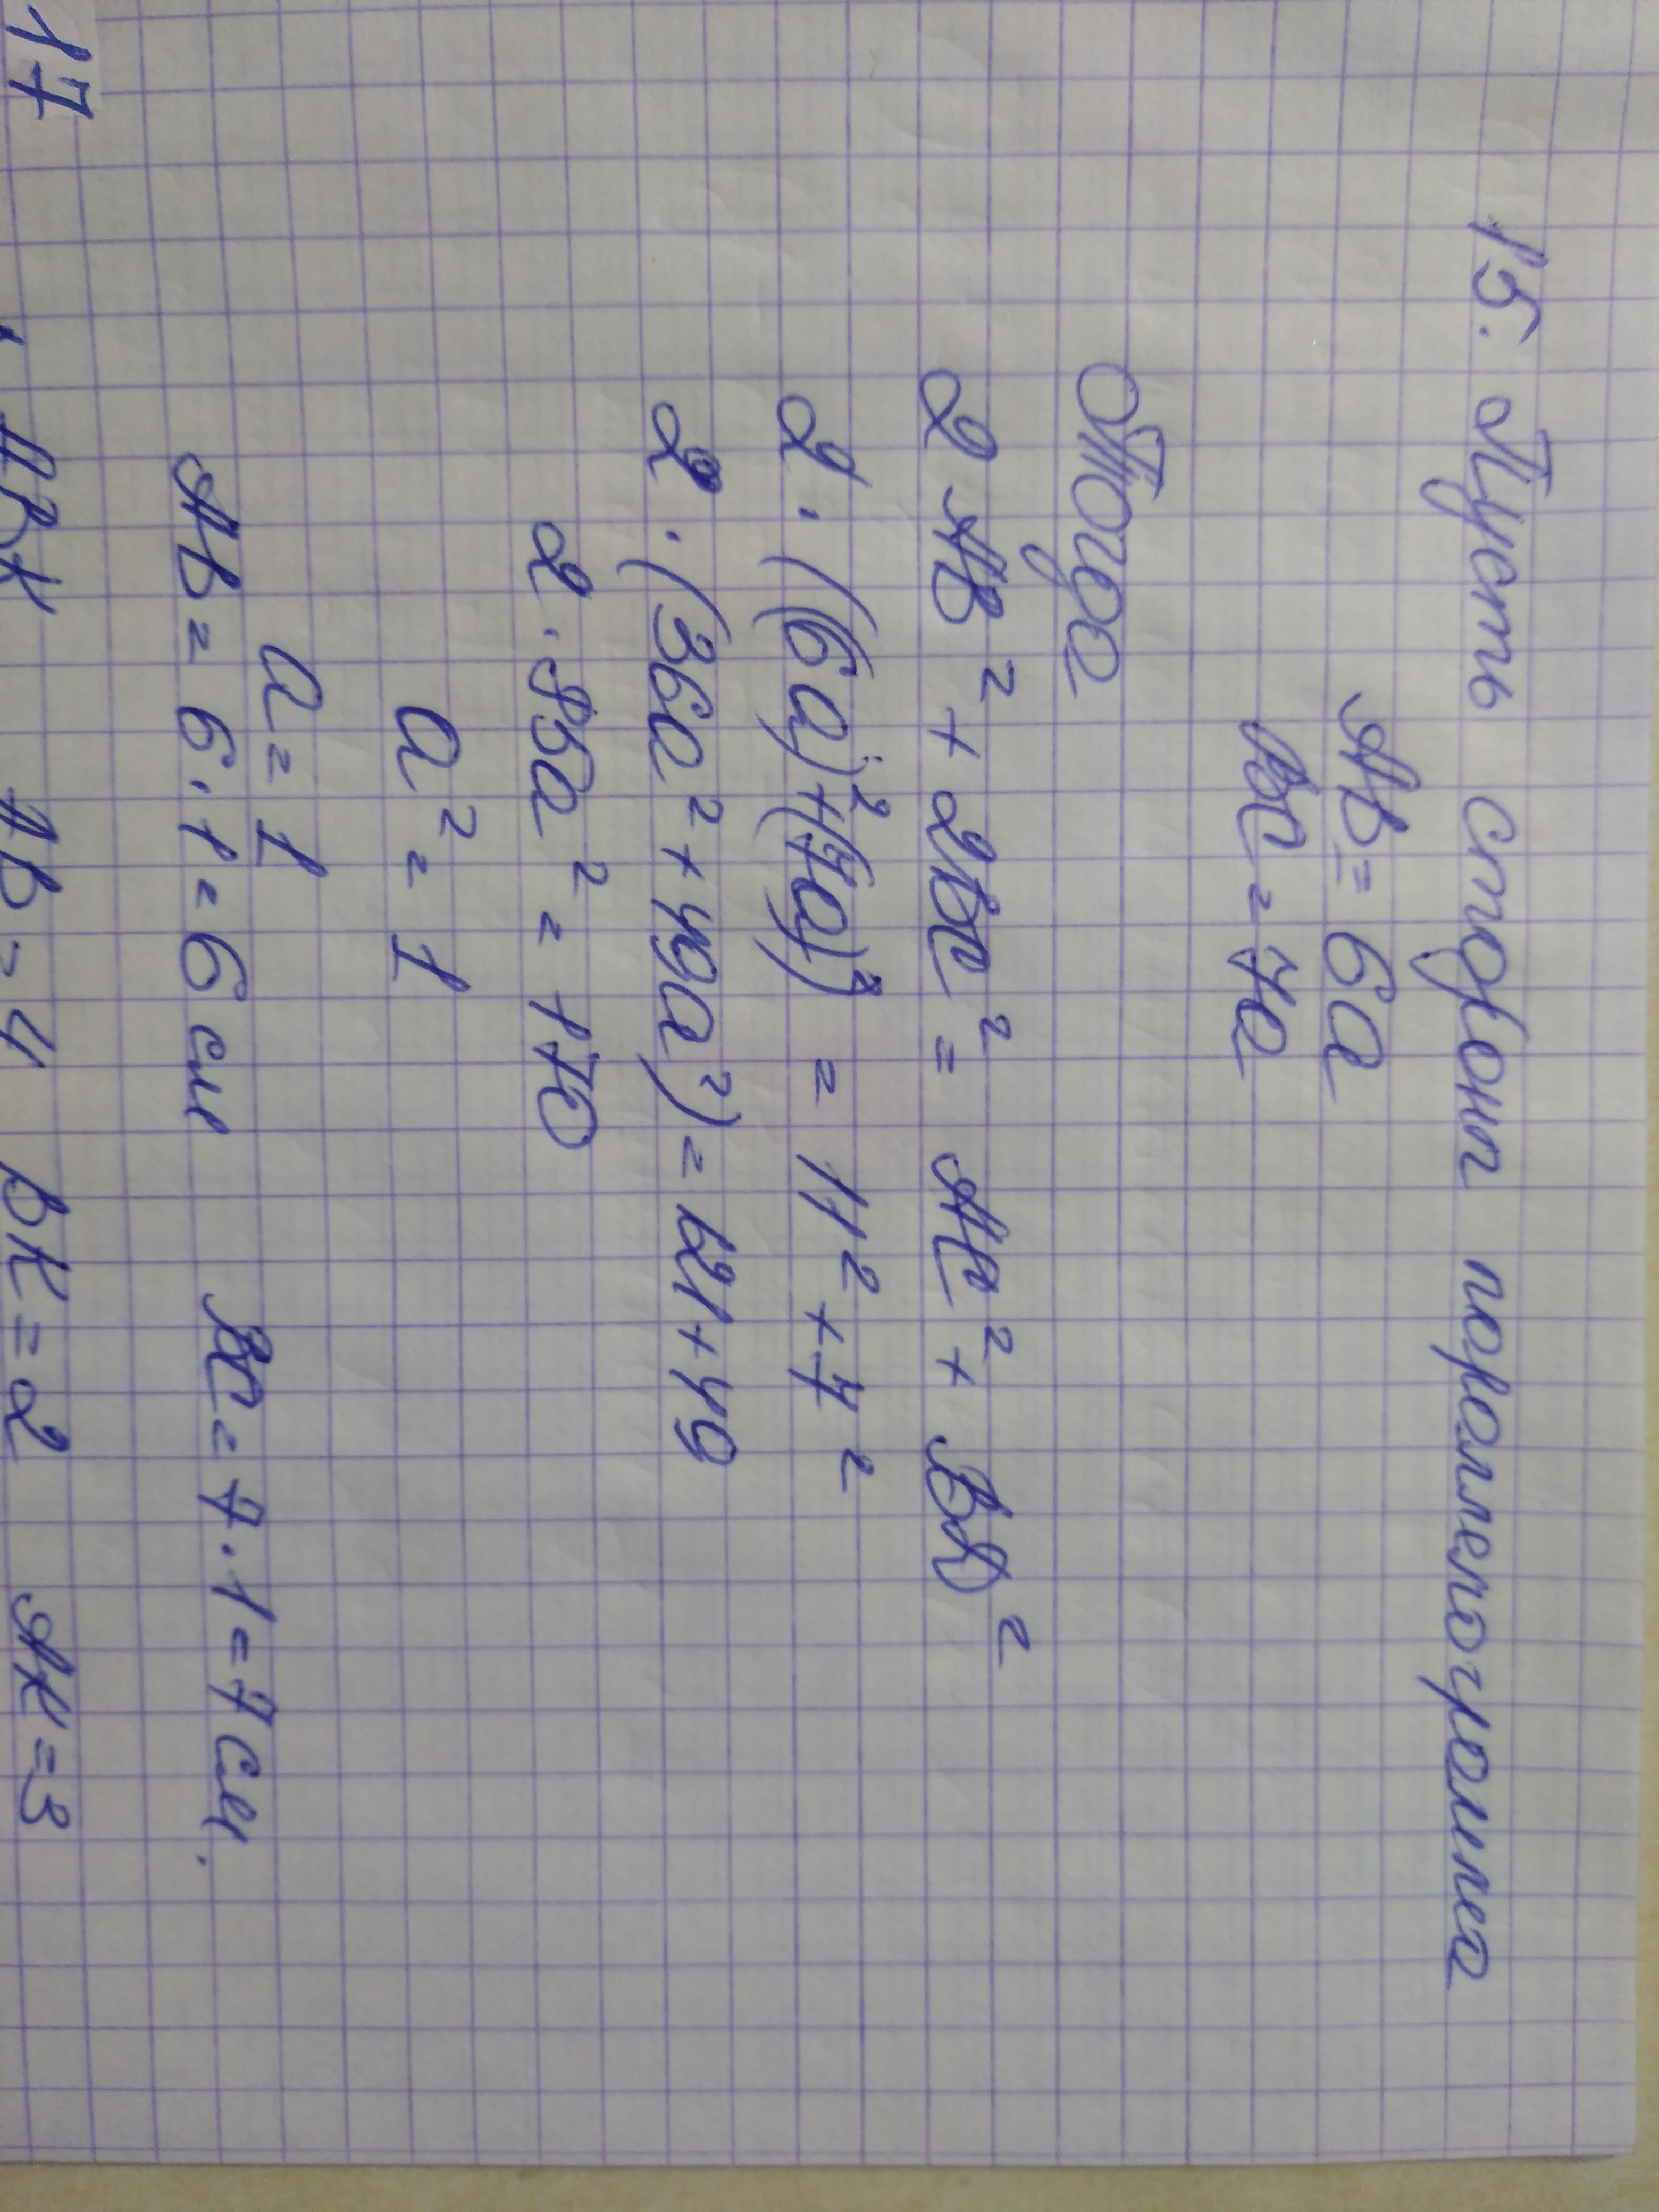 15. Пусть стороны пораллепогромма
AB = 6a
BC = 7a
Тогда
2AB² + 2BC² = AC² + BD²
2·((6a)²+(7a)²) = 11² + 7²
2·(36a² + 49a²) = 121 + 49
2·85a² = 170
a² = 1
a = 1
AB = 6·1 = 6 см BC = 7·1 = 7 см.
17
AB = 4 BK = 2 AK = 3